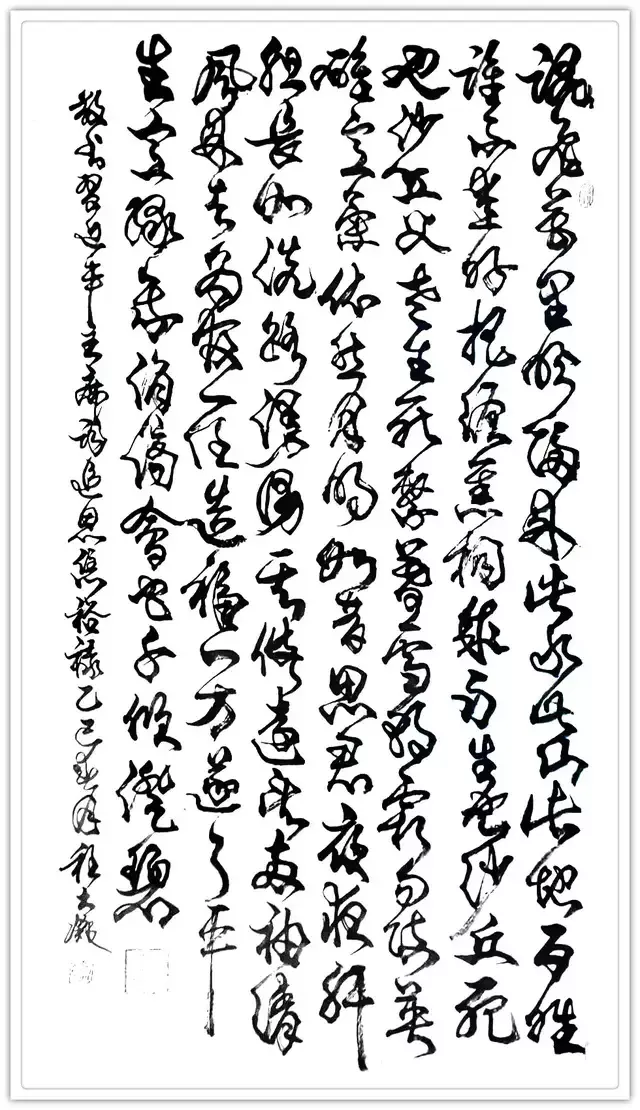 魂飞万里盼归来此水此山此地百姓
谁不爱好把泪焦桐成雨生也沙丘死
也沙丘父老生死系暮雪朝霜毋改英
雄意气依然月明如昔思君夜夜肝
胆长如洗路漫漫其修远矣两袖清
风来去为官一任造福一方遂了平
生意绿我涓滴会它千顷澄碧
敬书习近平主席词追思焦裕禄乙巳春月程大